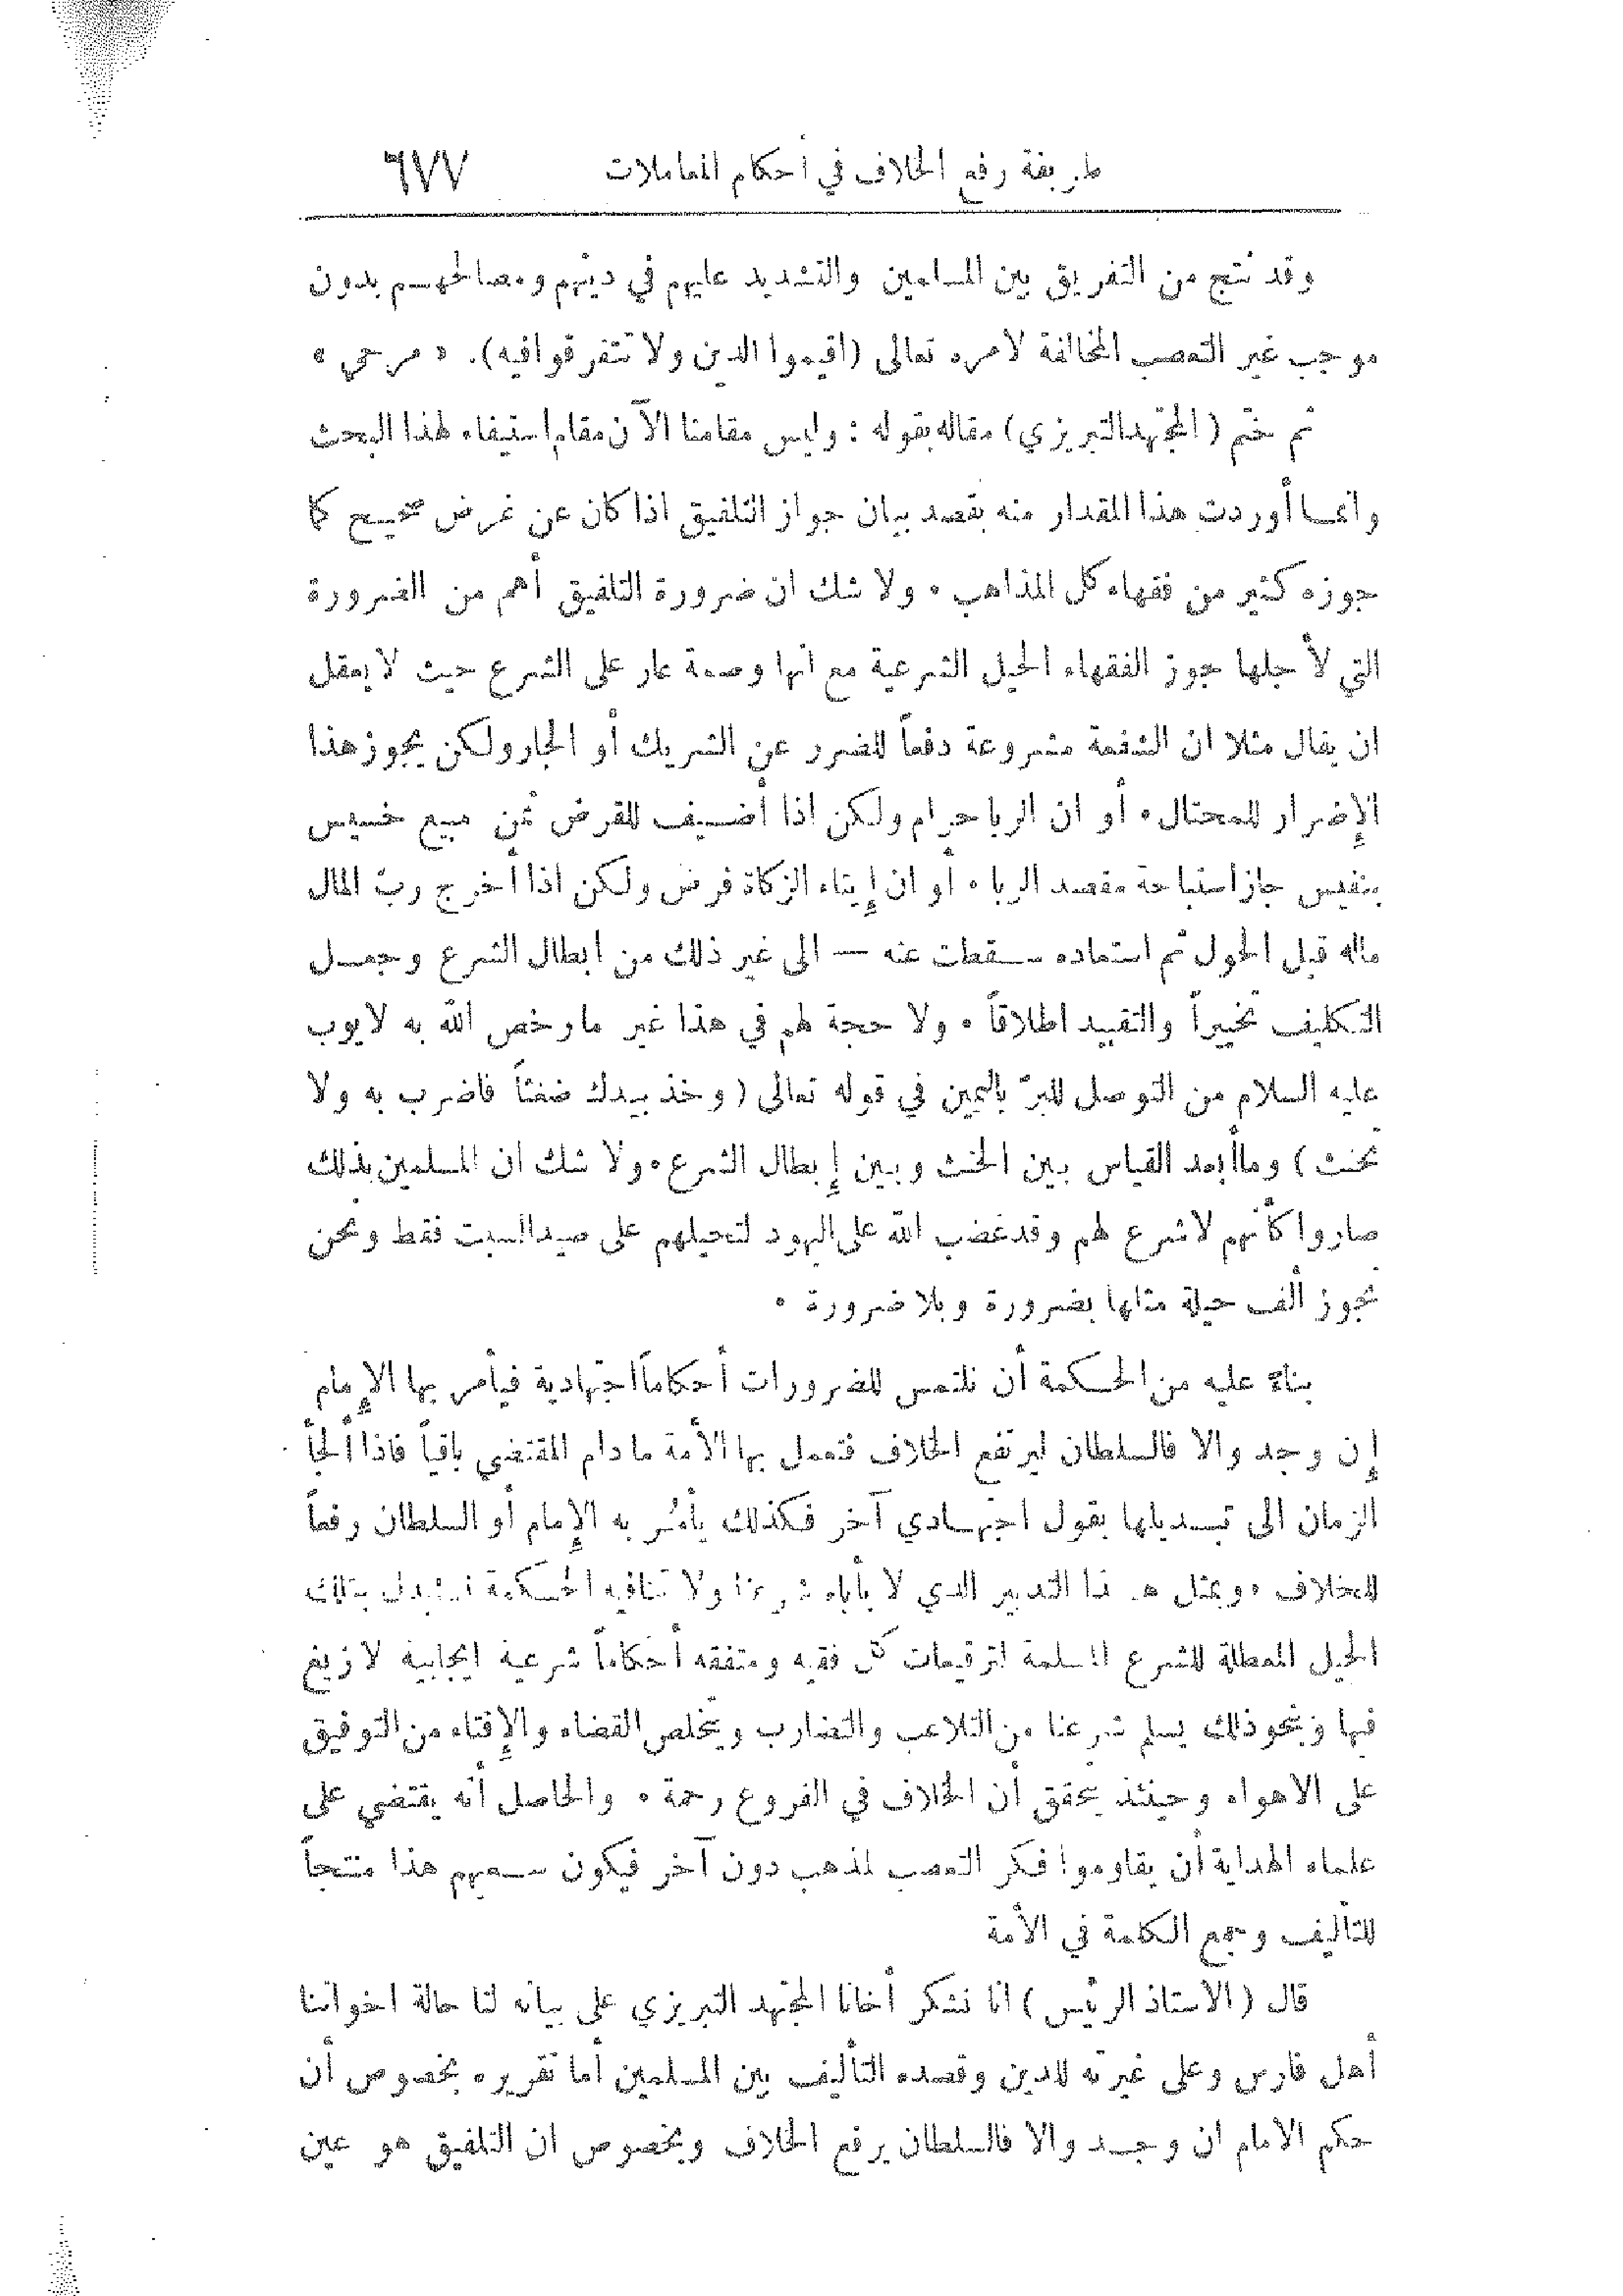 طريقة رفع الخلاف في أحكام المعاملات ٦٧٧
وقد نتج من التفريق بين المسلمين والتشديد عليهم في دينهم ومصالحهم بدون
موجب غير التعصب المخالفة لامره تعالى (اقيموا الدين ولا تتفرقوا فيه). « مرحي »
ثم ختم (المجتهد التبريزي) مقاله بقوله : وليس مقامنا الآن مقام استيفاء لهذا البحث
وانما أوردت هذا المقدار منه بقصد بيان جواز التلفيق اذا كان عن غرض صحيح كما
جوزه كثير من فقهاء كل المذاهب • ولا شك ان ضرورة التلفيق أهم من الضرورة
التي لأجلها جوز الفقهاء الحيل الشرعية مع انها وصمة عار على الشرع حيث لا يعقل
ان يقال مثلا ان الشفعة مشروعة دفعاً للضرر عن الشريك أو الجار ولكن يجوز هذا
الإضرار للمحتال • أو ان الربا حرام ولكن اذا أضيف للقرض ثمن مبيع خسيس
بنفيس جاز استباحة مقصد الربا • أو ان إيتاء الزكاة فرض ولكن اذا أخرج ربّ المال
ماله قبل الحول ثم استعاده سقطت عنه — الى غير ذلك من ابطال الشرع وجعل
التكليف تخييراً والتقييد اطلاقاً • ولا حجة لهم في هذا غير ما رخص الله به لايوب
عليه السلام من التوصل للبرّ باليمين في قوله تعالى (وخذ بيدك ضغثاً فاضرب به ولا
تحنث) وما أبعد القياس بين الحنث وبين إبطال الشرع • ولا شك ان المسلمين بذلك
صاروا كأنهم لا شرع لهم وقد غضب الله على اليهود لتحيلهم على صيد السبت فقط ونحن
نجوز ألف حيلة مثلها بضرورة وبلا ضرورة •
بناءً عليه من الحكمة أن نلتمس للضرورات أحكاماً اجتهادية فيأمر بها الإمام
إن وجد والا فالسلطان ليرتفع الخلاف فتعمل بها الأمة ما دام المقتضي باقياً فاذا ألجأ
الزمان الى تبديلها بقول اجتهادي آخر فكذلك يأمُر به الإمام أو السلطان رفعاً
للخلاف • وبمثل هذا التدبير الذي لا يأباه شرعنا ولا تنافيه الحكمة نستبدل بتلك
الحيل المعطلة للشرع المسلمة لترقيعات كل فقيه ومتفقه أحكاماً شرعية ايجابية لا زيغ
فيها وبنحو ذلك يسلم شرعنا من التلاعب والتضارب ويتخلص القضاء والإفتاء من التوفيق
على الاهواء وحينئذ يتحقق أن الخلاف في الفروع رحمة • والحاصل أنه يقتضي على
علماء الهداية أن يقاوموا فكر التعصب لمذهب دون آخر فيكون سعيهم هذا منتجاً
للتأليف وجمع الكلمة في الأمة
قال (الاستاذ الرئيس) انا نشكر أخانا المجتهد التبريزي على بيانه لنا حالة اخواننا
أهل فارس وعلى غيرته للدين وقصده التأليف بين المسلمين أما تقريره بخصوص أن
حكم الامام ان وجد والا فالسلطان يرفع الخلاف وبخصوص ان التلفيق هو عين